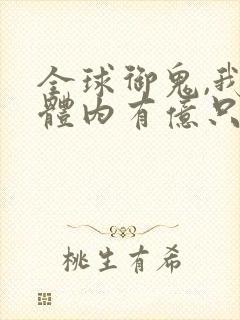 全球御鬼,我
體內有億只
桃生有希